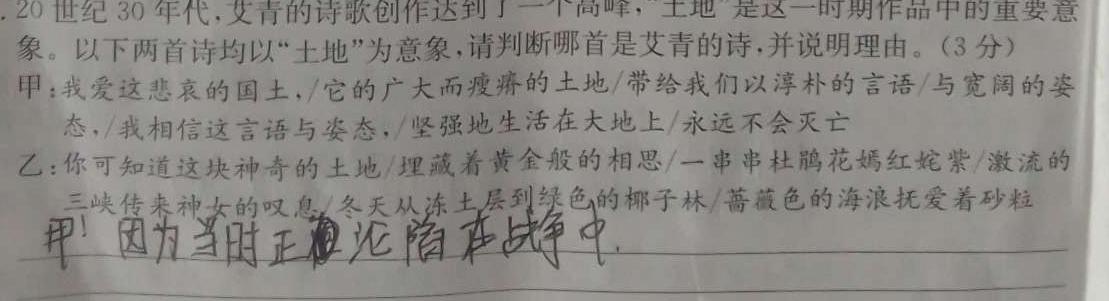 .20世纪30年代,艾青的诗歌创作达到了一个高峰,“土地”是这一时期作品中的重要意
象。以下两首诗均以“土地”为意象,请判断哪首是艾青的诗,并说明理由。(3分)
甲:我爱这悲哀的国土,/它的广大而瘦瘠的土地/带给我们以淳朴的言语/与宽阔的姿
态,/我相信这言语与姿态,/坚强地生活在大地上/永远不会灭亡
乙:你可知道这块神奇的土地/埋藏着黄金般的相思/一串串杜鹃花嫣红姹紫/激流的
三峡传来神女的叹息/冬天从冻土层到绿色的椰子林/蔷薇色的海浪抚爱着砂粒
甲! 因为当时正 沦陷在战争中.